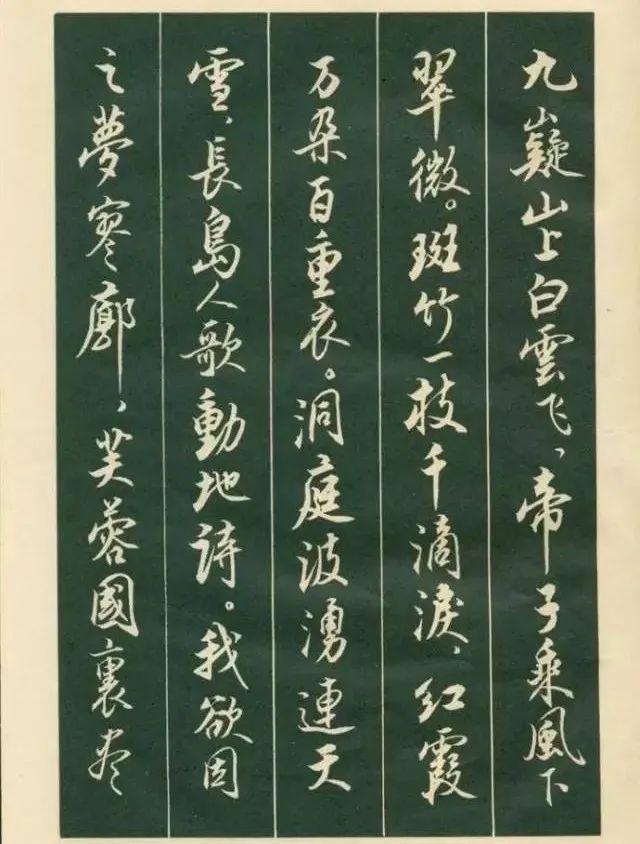 九嶷山上白雲飞、帝子乘風下
翠微。斑竹一枝千滴淚、红霞
万朶百重衣。洞庭波湧連天
雪、長島人歌動地詩。我欲因
之夢寥廓、芙蓉國裏尽